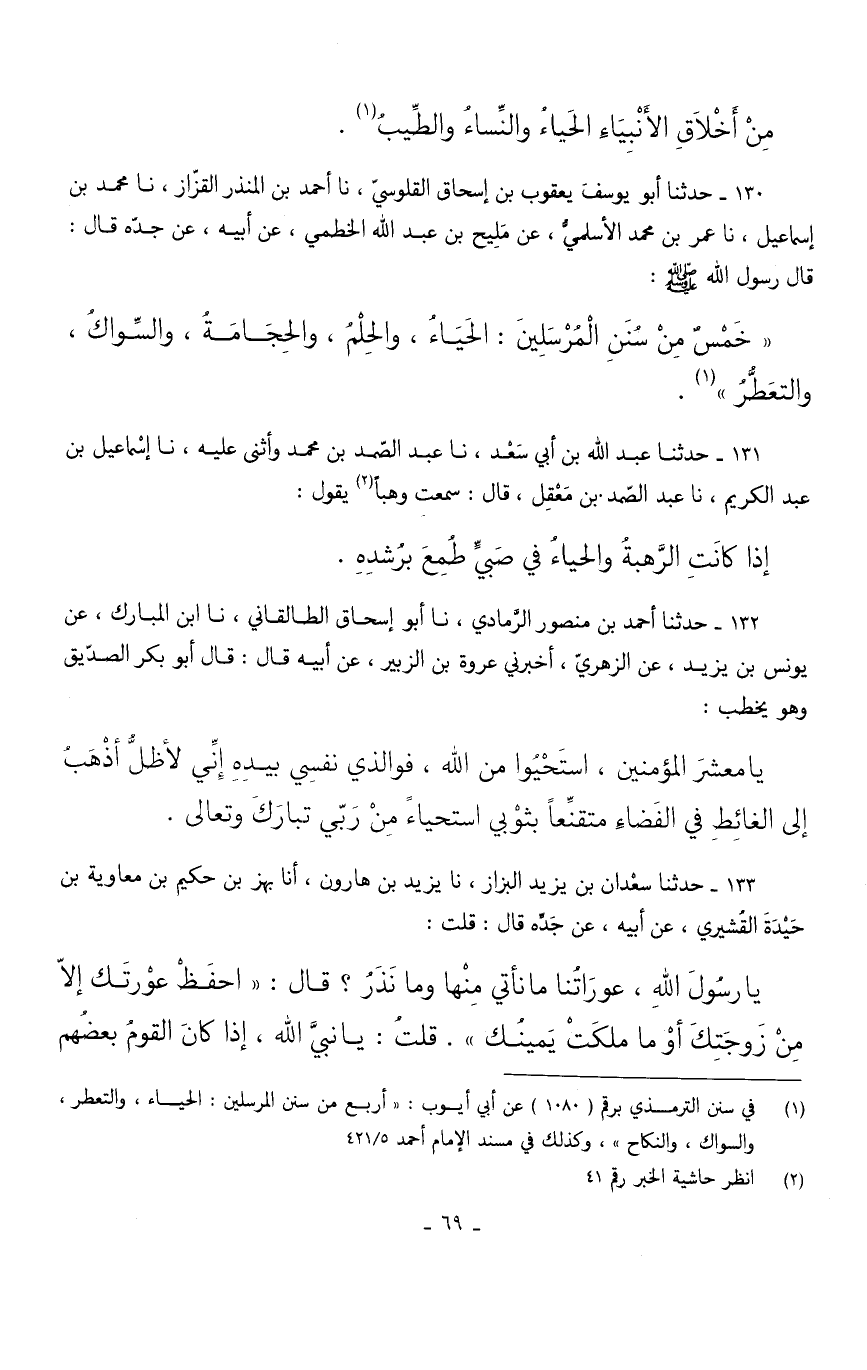 مِنْ أَخْلَاقِ الأَنْبِيَاءِ الحَياءُ والنِّساءُ والطِّيبُ(١) .
١٣٠ ـ حدثنا أبو يوسفَ يعقوب بن إسحاق القلوسيّ ، نا أحمد بن المنذر القزّاز ، نـا محمـد بن
إسماعيل ، نا عمر بن محمد الأسلميُّ ، عن مَليح بن عبـد الله الخطمي ، عن أبيـه ، عن جـدّه قـال :
قال رسول الله ﷺ :
« خَمْسٌ مِنْ سُنَنِ الْمُرْسَلِينَ : الحَيَـاءُ ، والحِلْمُ ، والحِجَـامَـةُ ، والسِّواكُ ،
والتعَطُّرُ »(١) .
١٣١ ـ حدثنـا عبـد الله بن أبي سَعْـد ، نـا عبـد الصّمـد بن محمـد وأثنى عليـه ، نـا إسْماعيل بن
عبد الكريم ، نا عبد الصّمد بن مَعْقِل ، قال : سمعت وهباً(٢) يقول :
إذا كانَتِ الرَّهبةُ والحياءُ في صَبيٍّ طُمِعَ برُشدِهِ .
١٣٢ ـ حدثنا أحمد بن منصور الرَّمادي ، نـا أبو إسحـاق الطـالقـاني ، نـا ابن المبارك ، عن
يونس بن يزيـد ، عن الزهريّ ، أخبرني عروة بن الزبير ، عن أبيـه قـال : قـال أبو بكر الصـدّيق
وهو يخطب :
يامعشرَ المؤمنين ، استَحْيُوا من الله ، فوالذي نفسِي بيـدِهِ إنِّي لأظلُّ أذْهَبُ
إلى الغائطِ في الفَضاءِ متقنِّعاً بثوْبي استحياءً مِنْ رَبّي تبارَكَ وتعالى .
١٣٣ ـ حدثنا سعْدان بن يزيد البزاز ، نا يزيد بن هارون ، أنا بهز بن حكيم بن معاوية بن
حَيْدَةَ القُشيري ، عن أبيه ، عن جَدِّه قال : قلت :
يارسُولَ اللهِ ، عورَاتُنا مانأتي مِنْها وما نَذَرُ ؟ قـال : « احفَـظْ عوْرتَـك إلاّ
مِنْ زَوجَتِكَ أوْ ما ملكَتْ يَمينُـك » . قلتُ : يـانبيَّ الله ، إذا كانَ القومُ بعضُهم
(١) في سنن الترمـذي برقم ( ١٠٨٠ ) عن أبي أيـوب : « أربـع من سنن المرسلين : الحيـاء ، والتعطر ،
والسواك ، والنكاح » ، وكذلك في مسند الإمام أحمد ٤٢١/٥
(٢) انظر حاشية الخبر رقم ٤١
ـ ٦٩ ـ